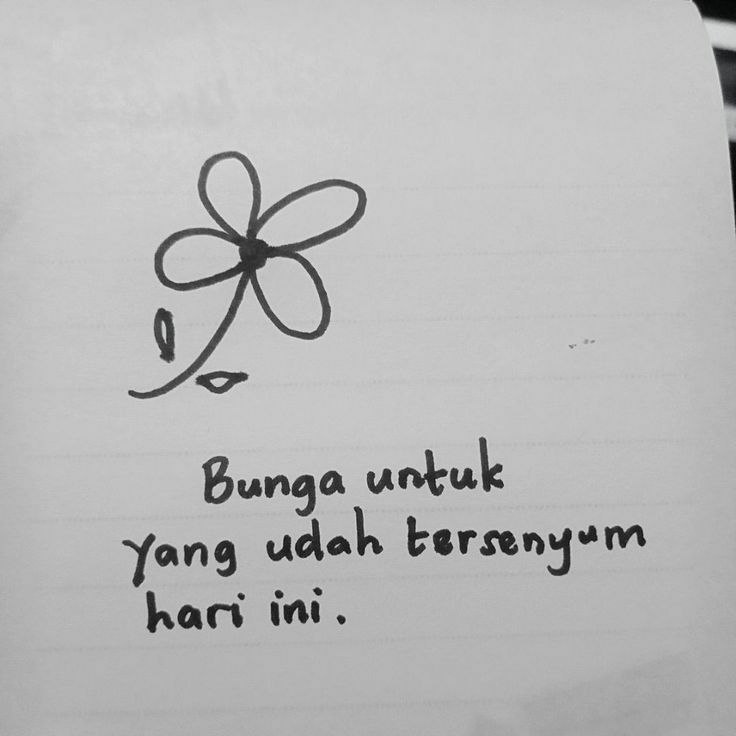 Bunga untuk
yang udah tersenyum
hari ini.